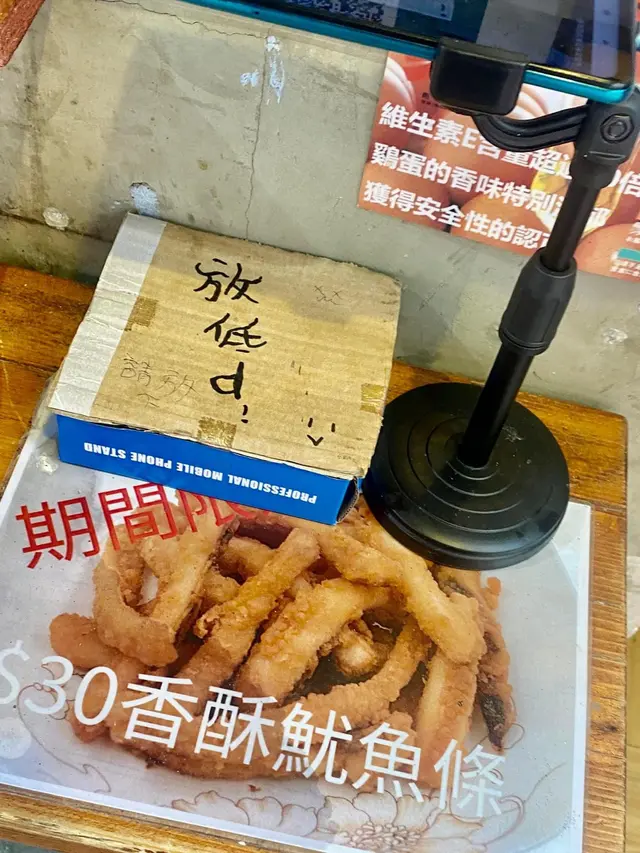 維生素E含量超
雞蛋的香味特別
獲得安全性的認
放
低
d
請放
PROFESSIONAL MOBILE PHONE STAND
期間限
$30香酥魷魚條